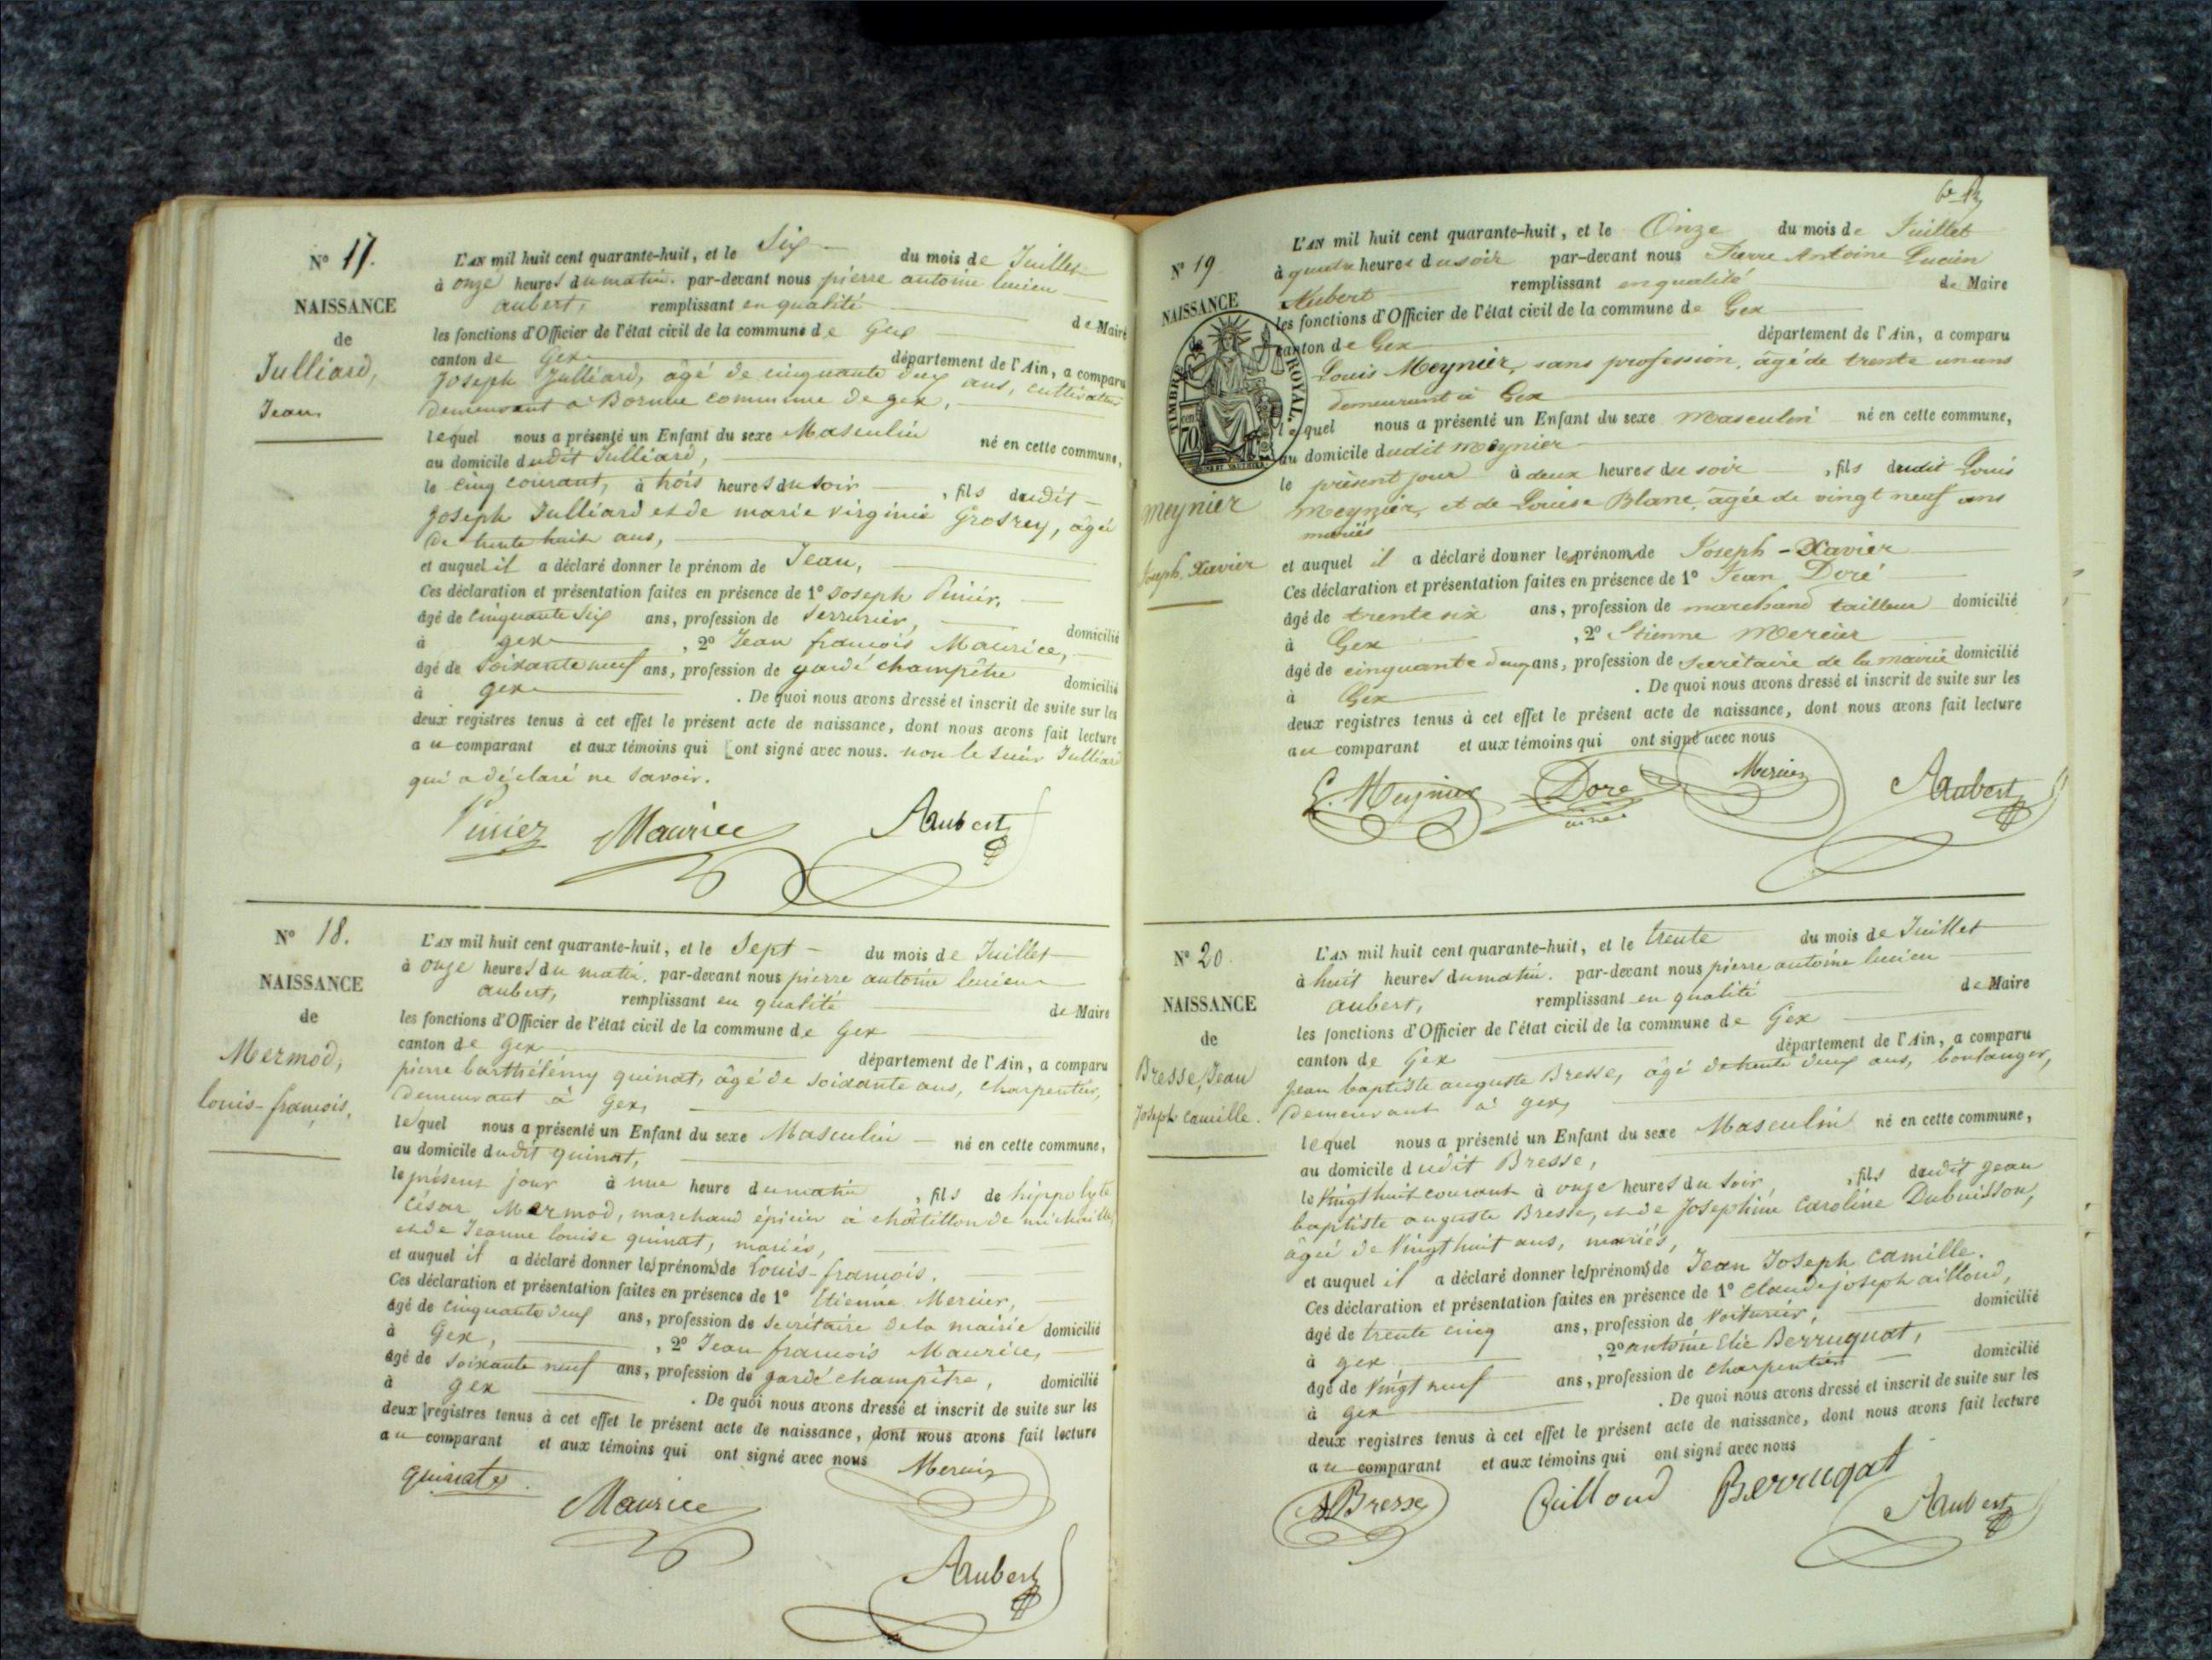 N° 17.
NAISSANCE
de
Julliard,
Jean
L'AN mil huit cent quarante-huit, et le Six du mois de Juillet
à onze heures du matin. par-devant nous pierre antoine lucien
aubert, remplissant en qualité de Maire
les fonctions d'Officier de l'état civil de la commune de Gex
canton de Gex département de l'Ain, a comparu
Joseph Julliard, âgé de cinquante deux ans, cultivateur
demeurant à Bornue commune de gex,
lequel nous a présenté un Enfant du sexe Masculin né en cette commune,
au domicile dudit Julliard,
le cinq courant, à trois heures du soir, fils dudit
Joseph Julliard et de marie virginie Grosrey, âgée
de trente huit ans,
et auquel il a déclaré donner le prénom de Jean,
Ces déclaration et présentation faites en présence de 1° Joseph Pinier,
âgé de cinquante Six ans, profession de Serrurier, domicilié
à gex, 2° Jean françois Maurice,
âgé de Soixante neuf ans, profession de garde champêtre domicilié
à gex. De quoi nous avons dressé et inscrit de suite sur les
deux registres tenus à cet effet le présent acte de naissance, dont nous avons fait lecture
au comparant et aux témoins qui ont signé avec nous. non le Sieur Julliard
qui a déclaré ne Savoir.
Pinier Maurice Aubert
N° 18.
NAISSANCE
de
Mermod,
louis-françois,
L'AN mil huit cent quarante-huit, et le Sept du mois de Juillet
à onze heures du matin. par-devant nous pierre antoine lucien
aubert, remplissant en qualité de Maire
les fonctions d'Officier de l'état civil de la commune de Gex
canton de gex département de l'Ain, a comparu
pierre barthélémy quinat, âgé de Soixante ans, charpentier,
demeurant à gex,
lequel nous a présenté un Enfant du sexe Masculin né en cette commune,
au domicile dudit quinat,
le présent jour à une heure du matin, fils de hippolyte
César Mermod, marchand épicier à châtillon de michaille,
et de Jeanne louise quinat, mariés,
et auquel il a déclaré donner les prénoms de Louis-françois.
Ces déclaration et présentation faites en présence de 1° Etienne Mercier,
âgé de cinquante deux ans, profession de Secrétaire de la mairie domicilié
à Gex, 2° Jean françois Maurice,
âgé de Soixante neuf ans, profession de garde champêtre, domicilié
à gex. De quoi nous avons dressé et inscrit de suite sur les
deux registres tenus à cet effet le présent acte de naissance, dont nous avons fait lecture
au comparant et aux témoins qui ont signé avec nous
quinat Maurice Mercier
Aubert
N° 19
NAISSANCE
de
TIMBRE ROYAL.
70
meynier
Joseph Xavier
L'AN mil huit cent quarante-huit, et le Onze du mois de Juillet
à quatre heures du soir par-devant nous Pierre Antoine Lucien
Aubert remplissant en qualité de Maire
les fonctions d'Officier de l'état civil de la commune de Gex
canton de Gex département de l'Ain, a comparu
Louis Meynier, sans profession, âgé de trente un ans
demeurant à Gex
lequel nous a présenté un Enfant du sexe masculin né en cette commune,
au domicile dudit meynier
le présent jour à deux heures du soir, fils dudit Louis
meynier, et de Louise Blanc, âgée de vingt neuf ans
mariés
et auquel il a déclaré donner les prénoms de Joseph - Xavier
Ces déclaration et présentation faites en présence de 1° Jean Doré
âgé de trente six ans, profession de marchand tailleur domicilié
à Gex, 2° Etienne Mercier
âgé de cinquante deux ans, profession de secrétaire de la mairie domicilié
à Gex. De quoi nous avons dressé et inscrit de suite sur les
deux registres tenus à cet effet le présent acte de naissance, dont nous avons fait lecture
au comparant et aux témoins qui ont signé avec nous
L. Meynier Doré ainé Mercier Aubert
N° 20
NAISSANCE
de
Bresse, Jean
Joseph camille.
L'AN mil huit cent quarante-huit, et le trente du mois de Juillet
à huit heures du matin. par-devant nous pierre antoine lucien
aubert, remplissant en qualité de Maire
les fonctions d'Officier de l'état civil de la commune de Gex
canton de Gex département de l'Ain, a comparu
Jean baptiste auguste Bresse, âgé de trente deux ans, boulanger,
demeurant à gex,
lequel nous a présenté un Enfant du sexe Masculin né en cette commune,
au domicile dudit Bresse,
le Vingt huit courant à onze heures du Soir, fils dudit Jean
baptiste auguste Bresse, et de Joséphine Caroline Dubuisson,
âgée de Vingt huit ans, mariés,
et auquel il a déclaré donner les prénoms de Jean Joseph Camille.
Ces déclaration et présentation faites en présence de 1° Claude joseph ailloud,
âgé de trente cinq ans, profession de Voiturier, domicilié
à gex, 2° antoine Elie Berruquat,
âgé de Vingt neuf ans, profession de charpentier domicilié
à gex. De quoi nous avons dressé et inscrit de suite sur les
deux registres tenus à cet effet le présent acte de naissance, dont nous avons fait lecture
au comparant et aux témoins qui ont signé avec nous
ABresse Ailloud Berrugat Aubert